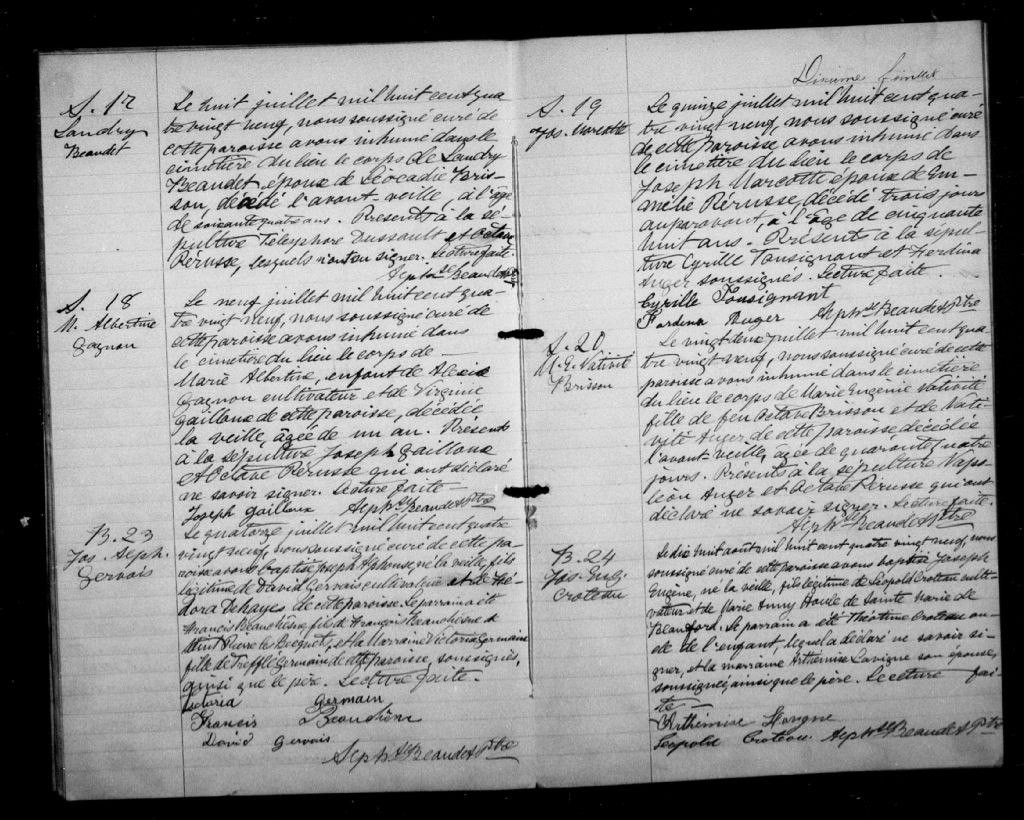 S. 17
Landry
Beaudet
Le huit juillet mil huit cent qua
tre vingt neuf, nous soussigné curé de
cette paroisse avons inhumé dans le
cimetière du lieu le corps de Landry
Beaudet époux de Léocadie Bris-
son, décédé l'avant-veille, à l'âge
de soixante quatre ans. Présents à la sé-
pulture Télesphore Dussault et Octave
Pérusse, lesquels n'ont su signer. Lecture faite.
Alph. Beaudet Ptre
S. 18
M. Albertine
Gagnon
Le neuf juillet mil huit cent qua-
tre vingt neuf, nous soussigné curé de
cette paroisse avons inhumé dans
le cimetière du lieu le corps de
Marie Albertine, enfant de Alexis
Gagnon cultivateur et de Virginie
Gailloux de cette paroisse, décédée
la veille, âgée de un an. Présents
à la sépulture Joseph Gailloux
et Octave Pérusse qui ont déclaré
ne savoir signer. Lecture faite
Joseph Gailloux Alph. Beaudet Ptre
B. 23
Jos. Alph.
Gervais
Le quatorze juillet mil huit cent quatre
vingt neuf, nous soussigné curé de cette pa-
roisse avons baptisé Joseph Alphonse, né la veille, fils
légitime de David Gervais cultivateur et de Thé-
dora Dehayes de cette paroisse. Le parrain a été
Francis Beauchêne fils de François Beauchesne de
Saint Pierre les Becquets, et la Marraine Victoria Germain
fille de Trefflé Germain de cette paroisse, soussignés,
ainsi que le père. Lecture faite.
Victoria Germain
Francis Beauchêne
David Gervais
Alph. Beaudet Ptre
Dixième feuillet
S. 19
Jos. Marcotte
Le quinze juillet mil huit cent qua-
tre vingt neuf, nous soussigné curé
de cette paroisse avons inhumé dans
le cimetière du lieu le corps de
Joseph Marcotte époux de Em-
mélie Pérusse, décédé trois jours
auparavant, à l'âge de cinquante
huit ans. Présents à la sépul-
ture Cyrille Tousignant et Ferdina
Auger soussignés. Lecture faite.
Cyrille Tousignant
Fardina Auger Alph. Beaudet Ptre
S. 20
M. E. Nativité
Brisson
Le vingt juillet mil huit cent qua
tre vingt neuf, nous soussigné curé de cette
paroisse avons inhumé dans le cimetière
du lieu le corps de Marie Eugénie Nativité
fille de feu Octave Brisson et de Nati-
vité Auger de cette paroisse décédée
l'avant-veille, agée de quarante quatre
jours. Présents à la sépulture Napo-
léon Auger et Octave Pérusse qui ont
déclaré ne savoir signer. Lecture faite.
Alph. Beaudet Ptre
B. 24
Jos. Eug.
Croteau
Le dix huit août mil huit cent quatre vingt neuf, nous
soussigné curé de cette paroisse avons baptisé Joseph
Eugène, né la veille, fils légitime de Léopold Croteau culti-
vateur et de Marie Anny Houle de Sainte Marie de
Blandford. Le parrain a été Théotime Croteau on-
cle de l'enfant, lequel a déclaré ne savoir si-
gner, et la marraine Arthémise Lavigne son épouse,
soussignée ainsi que le père. Lecture fai-
te
Arthémise
Léopold Croteau Alph. Beaudet Ptre